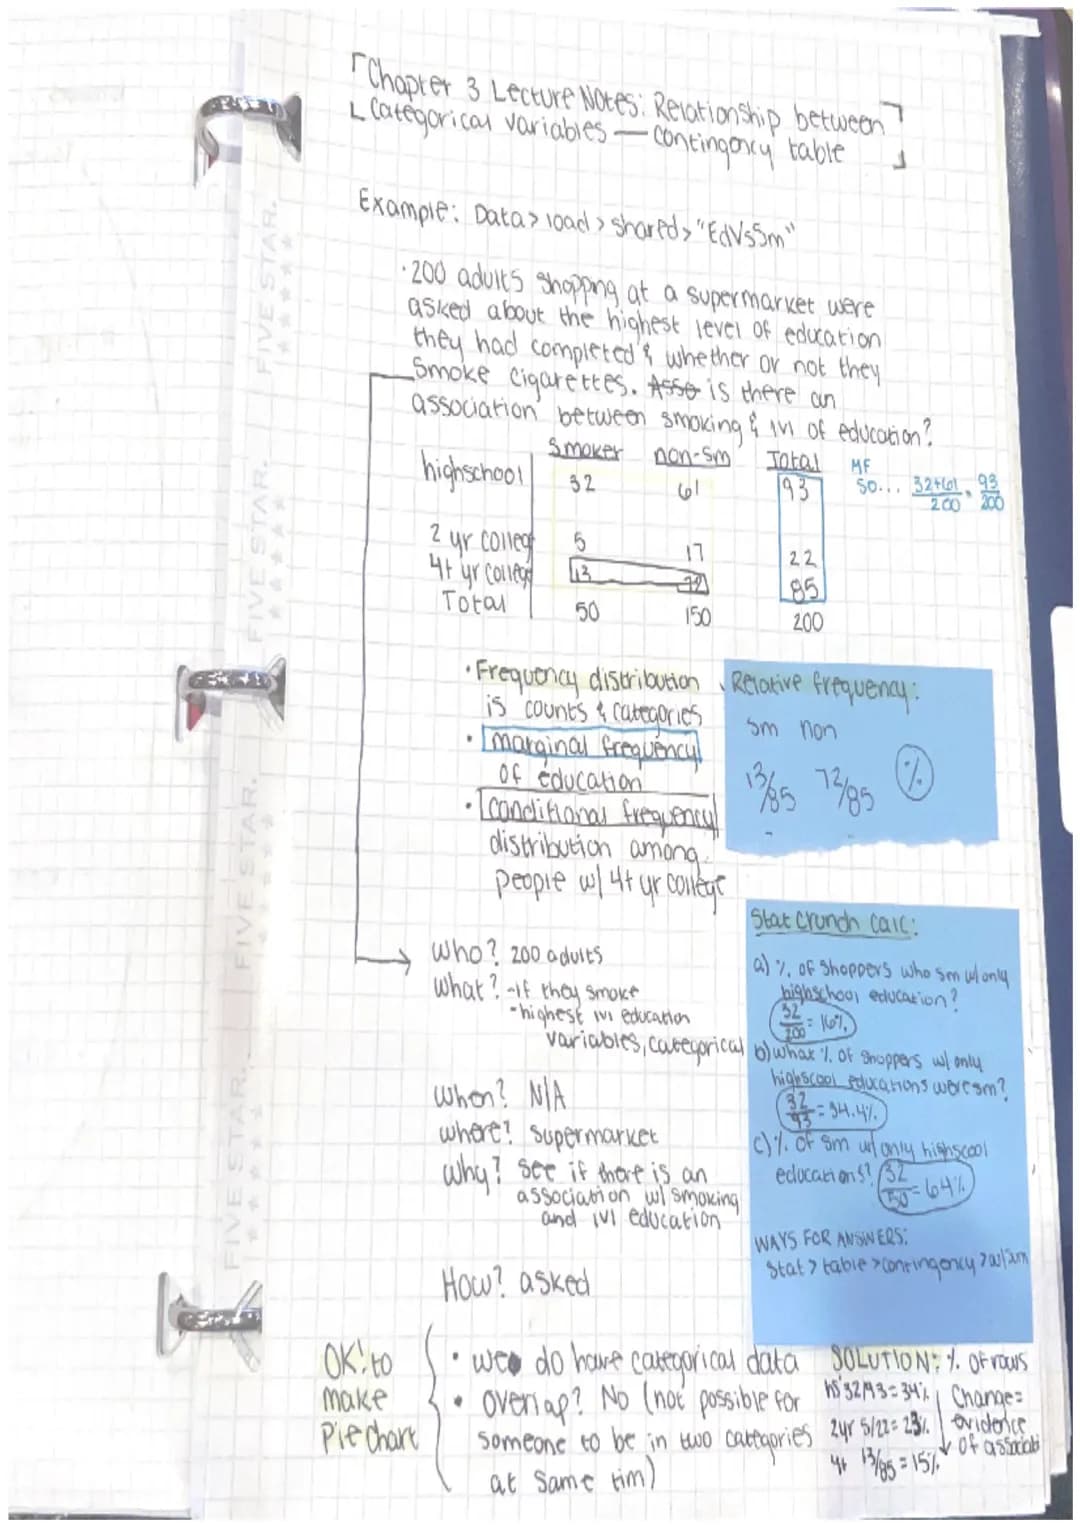 Chapter 3 Lecture Notes: Relationship between
Categorical variables — contingency table
Example: Data > load > shared > "EdVsSm"
· 200 adults shopping at a supermarket were
asked about the highest level of education
they had completed & whether or not they
smoke cigarettes. Asso is there an
association between smoking & lvl of education?
smoker non-sm Total
highschool 32 61 93
MF
so... 32+61/200 = 93/200
2 yr colleg 5 17 22
4+ yr colleg 13 72 85
Total 50 150 200
· Frequency distribution
is counts & categories
· marginal frequency
of education
· conditional frequency
distribution among
people w/ 4+ yr college
Relative frequency:
sm non
13/85 72/85 %
who? 200 adults
what? -if they smoke
-highest lvl education
variables, categorical
when? N/A
where? supermarket
why? see if there is an
association w/ smoking
and lvl education
How? asked
Stat Crunch calc:
a) % of shoppers who sm w/ only
highschool education?
32/200 = 16%
b) what % of shoppers w/ only
highscool educations were sm?
32/93 = 34.4%
c) % of sm w/ only highscool
educations? 32/50 = 64%
WAYS FOR ANSWERS:
Stat > table > contingency > w/sum
OK! to
make
Pie chart
· we do have categorical data
· overlap? No (not possible for
someone to be in two categories
at same tim)
SOLUTION: % of rows
hs 32/93 = 34%
2yr 5/22 = 23%
4+ 13/85 = 15%
Change =
evidence
of associati
FIVE STAR.
FIVE STAR.
FIVE STAR.
FIVE STAR.